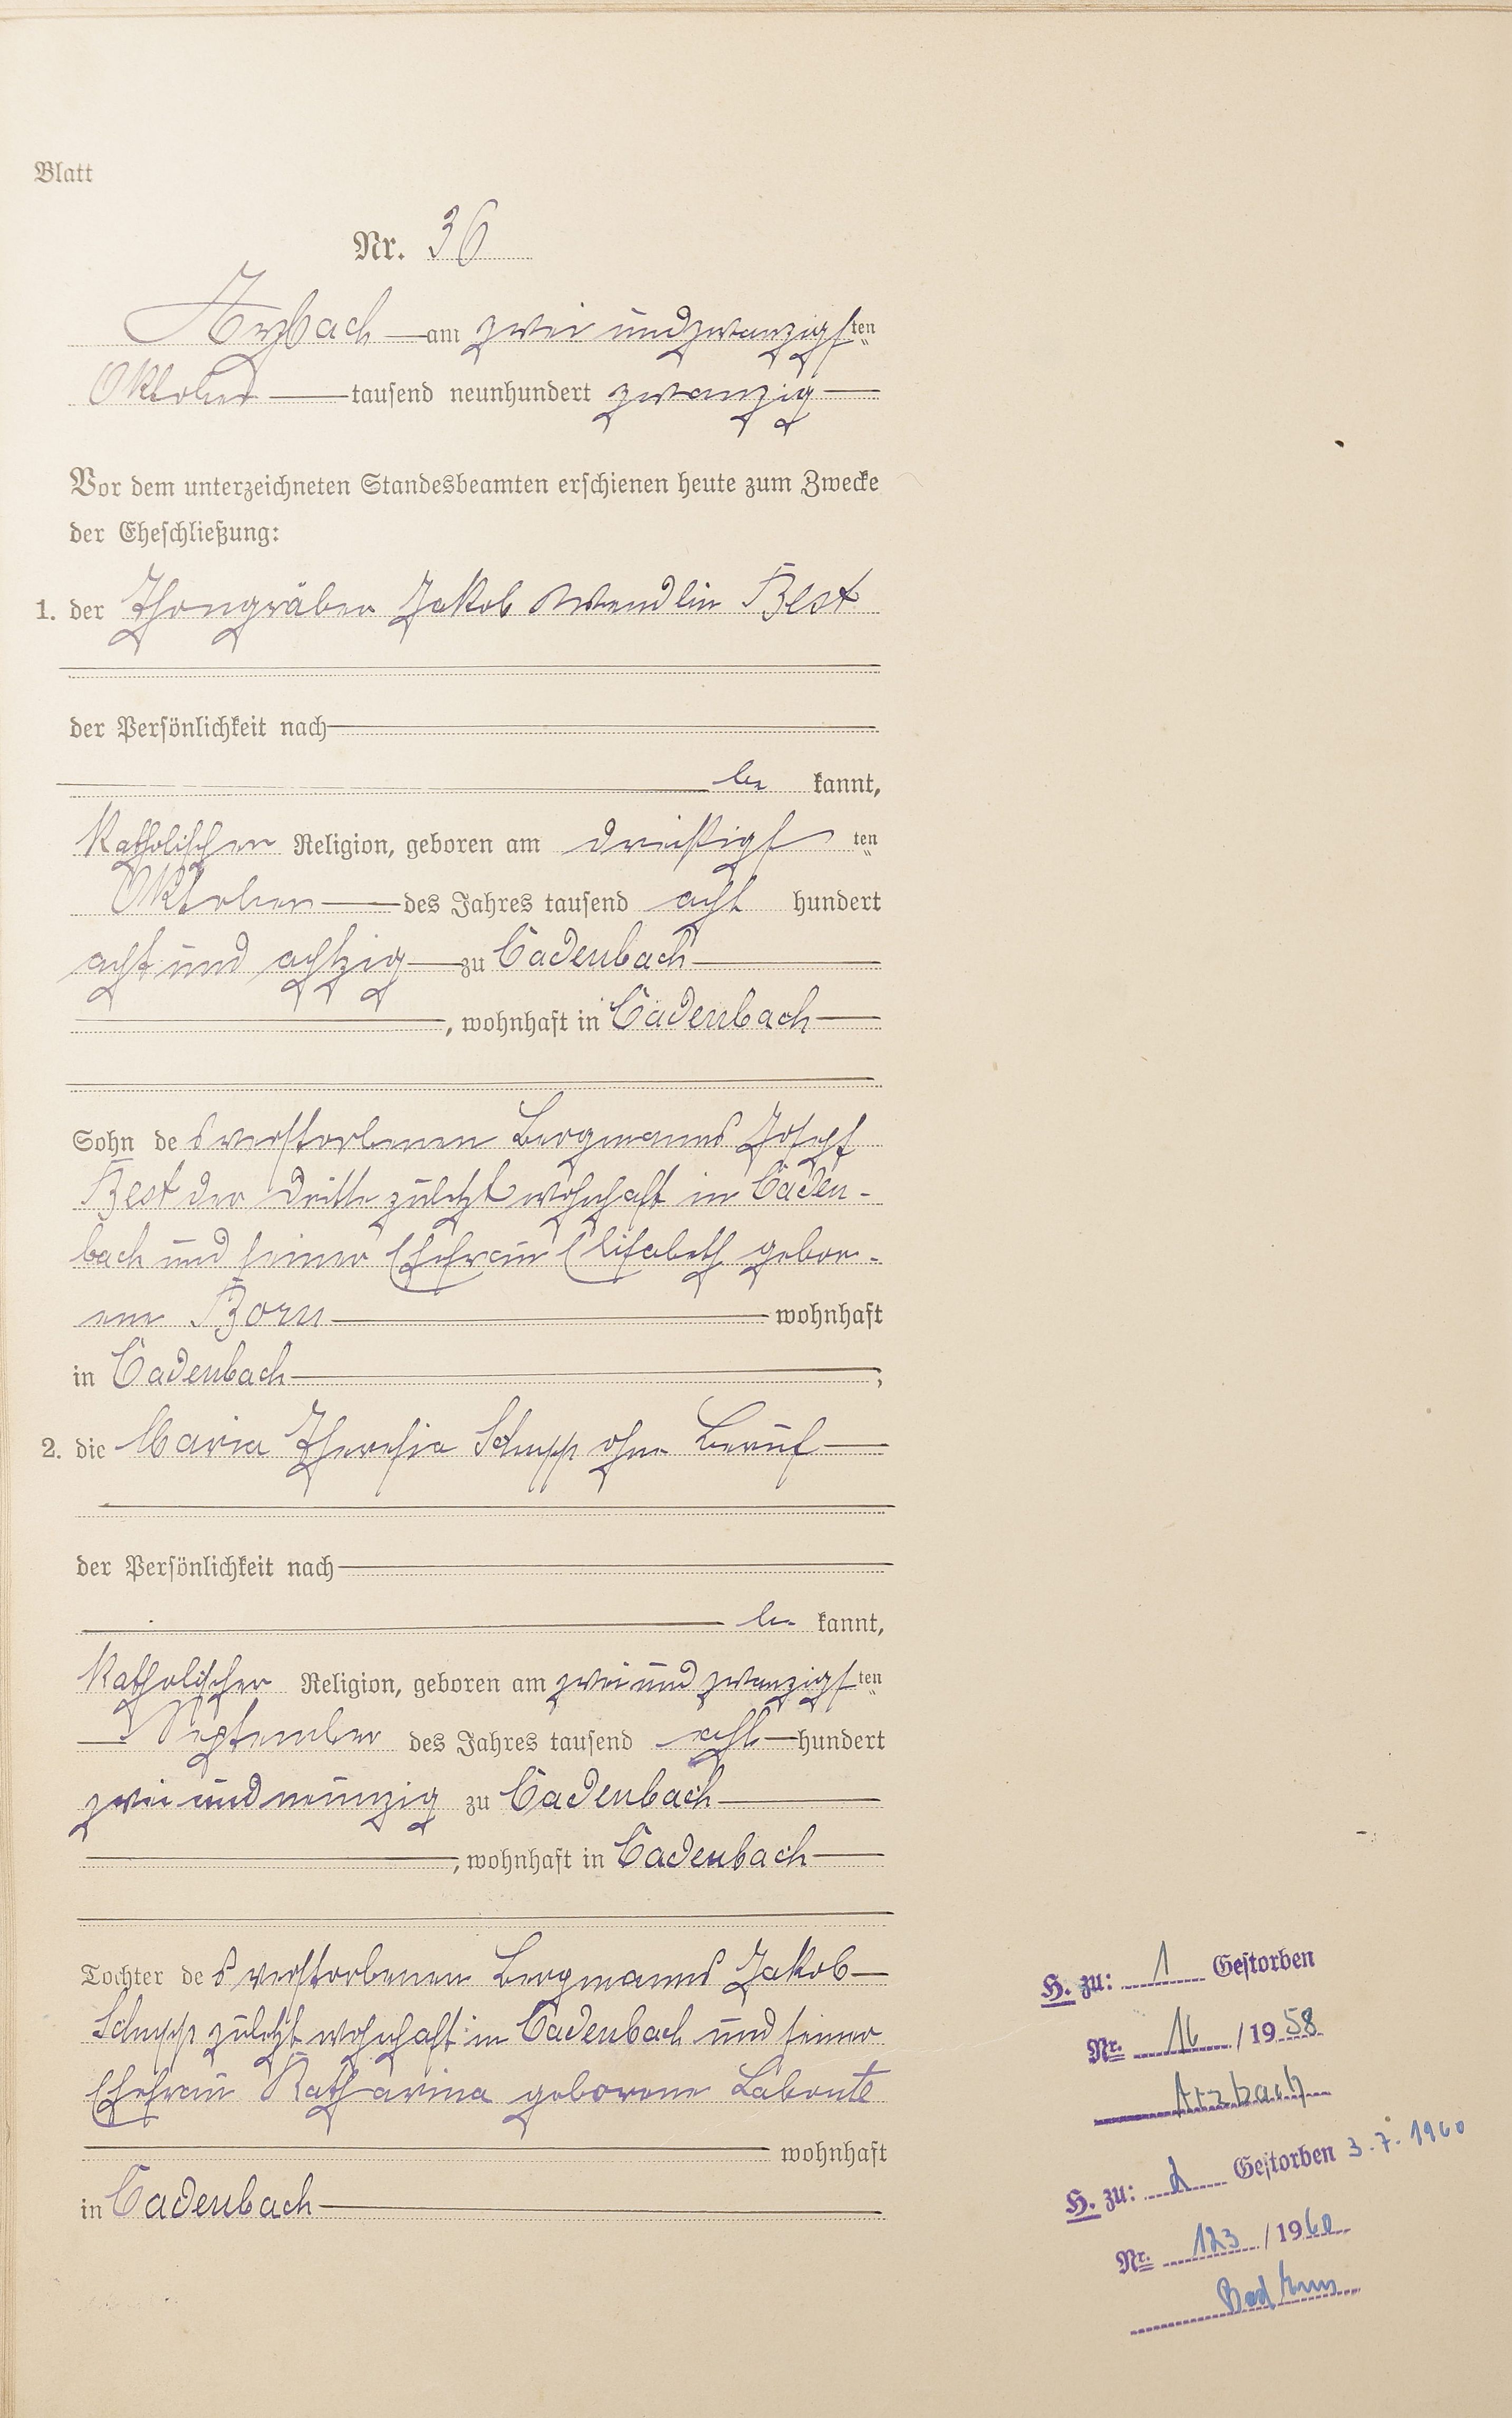 Blatt
Nr. 36
Arzbach am zwei und zwanzigsten
Oktober tausend neunhundert zwanzig
Vor dem unterzeichneten Standesbeamten erschienen heute zum Zwecke
der Eheschließung:
1. der Thongräber Jakob Wendlin Best
der Persönlichkeit nach
be kannt,
Katholischer Religion, geboren am dreißigsten
Oktober des Jahres tausend acht hundert
acht und achtzig zu Cadenbach
, wohnhaft in Cadenbach
Sohn des verstorbenen Bergmanns Joseph
Best der Dritte zuletzt wohnhaft in Caden-
bach und seiner Ehefrau Elisabeth gebor-
ene Born wohnhaft
in Cadenbach,
2. die Maria Theresia Schupp ohne Beruf
der Persönlichkeit nach
be kannt,
Katholischer Religion, geboren am zwei und zwanzigsten
September des Jahres tausend acht hundert
zwei und neunzig zu Cadenbach
, wohnhaft in Cadenbach
Tochter des verstorbenen Bergmanns Jakob
Schupp zuletzt wohnhaft in Cadenbach und seiner
Ehefrau Katharina geborene Labonte
wohnhaft
in Cadenbach
H. zu: 1 Gestorben
Nr. 16 / 1958
Arzbach
H. zu: 2 Gestorben 3.7.1960
Nr. 123 / 1960
Bad Ems